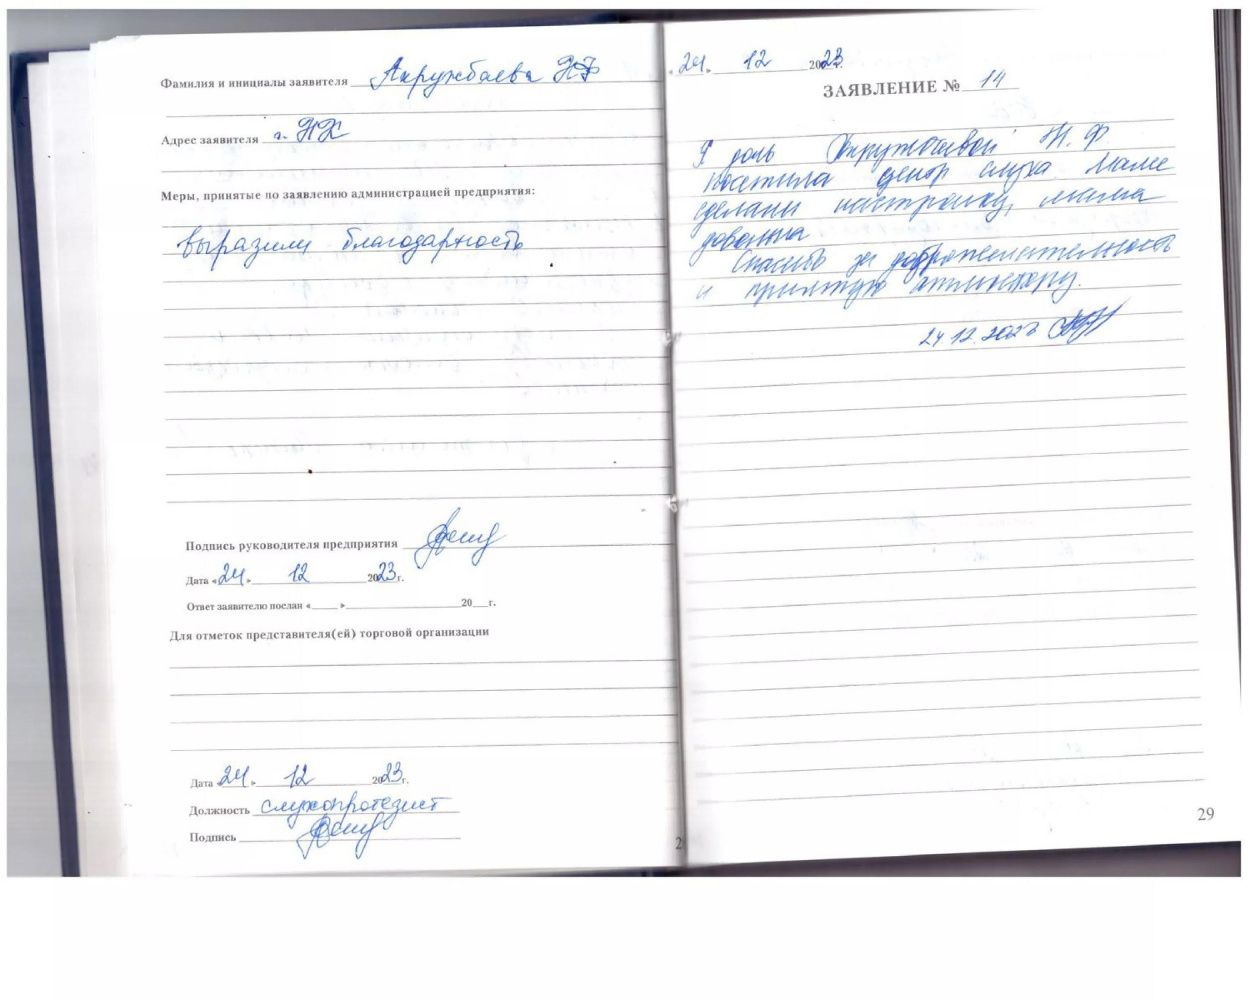 Фамилия и инициалы заявителя Анружбаева НФ
Адрес заявителя г. НК
Меры, принятые по заявлению администрацией предприятия:
выразили благодарность
Подпись руководителя предприятия
Дата «24» 12 2023г.
Ответ заявителю послан «___» 20__г.
Для отметок представителя(ей) торговой организации
Дата 24» 12 2023г.
Должность слухопротезист
Подпись
2
«24» 12 2023г.
ЗАЯВЛЕНИЕ № 14
Я дочь Н. Ф.
посетила центр слуха Маме
сделали настройку, мама
довольна
Спасибо за доброжелательность
и приятную атмосферу.
24 12. 2023
29